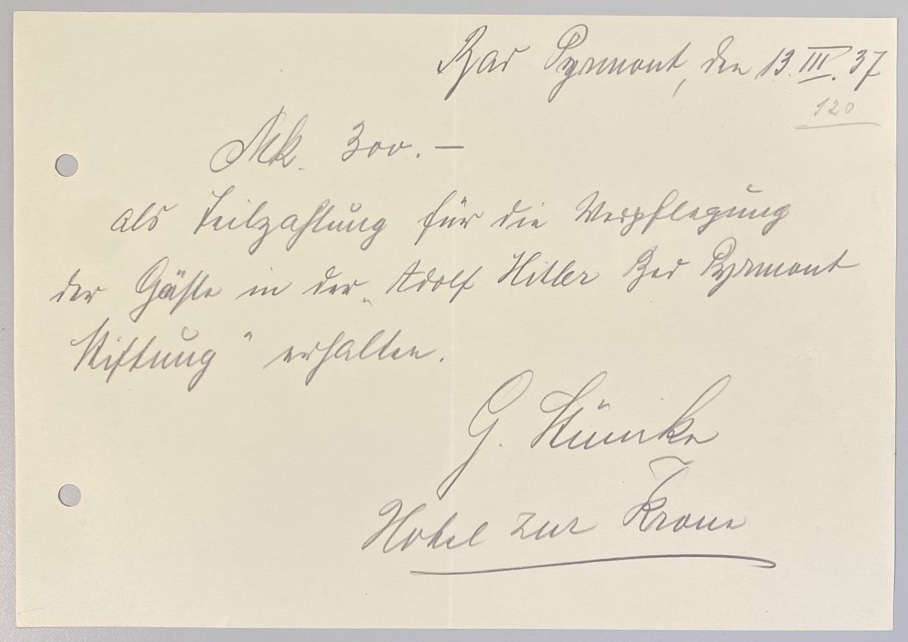 Bad Pyrmont, den 13.III.37
120
Mk. 300.—
als Teilzahlung für die Verpflegung
der Gäste in der „Adolf Hitler Bad Pyrmont
Stiftung" erhalten.
G. Stümke
Hotel zur Krone